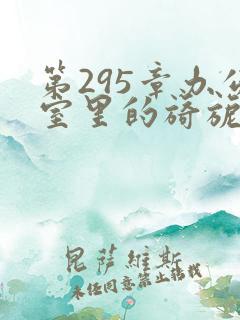 第295章办公
室里的旖旎
昆萨维斯
未经同意禁止转载